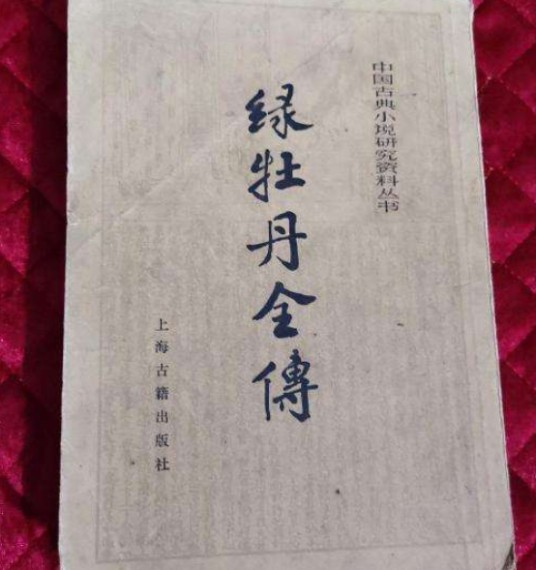 中国古典小说研究资料丛书
绿牡丹全傳
上海古籍出版社